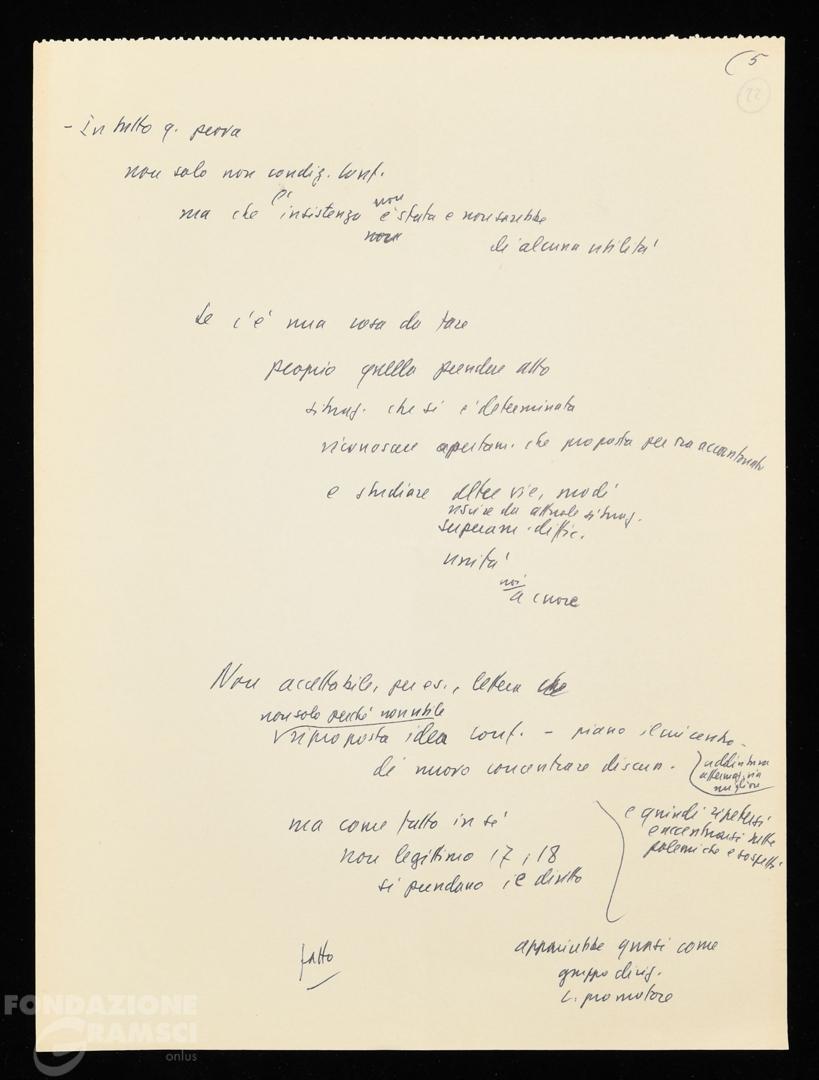 (5
22
- In tutto q. prova
non solo non condiz. conf.
ma che insistenza non è stata e non sarebbe
di alcuna utilità
Se c'è una cosa da fare
proprio quella prendere atto
situaz. che si è determinata
riconoscere apertam. che proposta per ora accantonata
e studiare altre vie, modi
uscire da attuale situaz.
superam. diffic.
unità
noi
a cuore
Non accettabile, per es., lettera che
non solo perché non utile
riproposta idea conf. -
di nuovo concentrare discuss.
addirittura
afferma, via
migliore
ma come fatto in sé
non legittimo 17, 18
si prendano il diritto
e quindi ripetersi
e accentuarsi tutte
polemiche e sospetti
fatto
apparirebbe quasi come
gruppo dirig.
c. promotore
FONDAZIONE
GRAMSCI
onlus